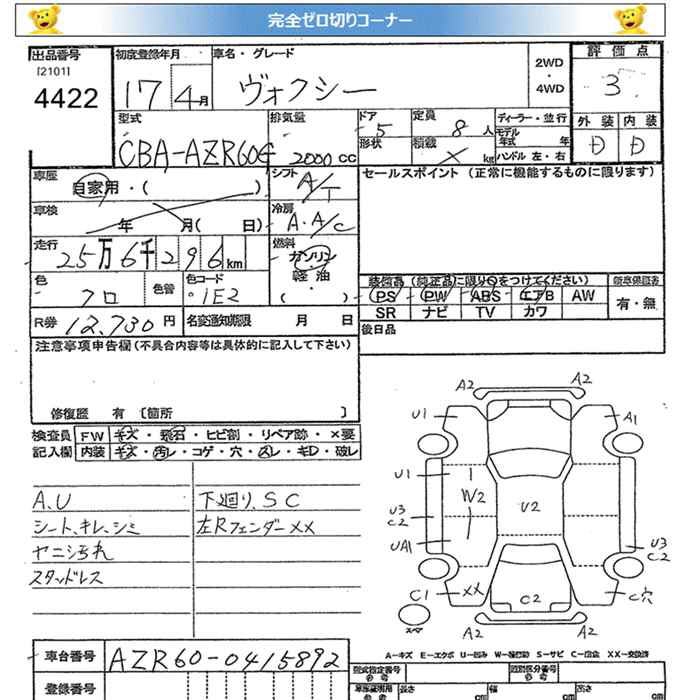 完全ゼロ切りコーナー
出品番号
[2101]
4422
初度登録年月
17 4月
車名・グレード
ヴォクシー
2WD
・
4WD
評価点
3
外装 内装
D D
型式
CBA-AZR60G
排気量
2000 CC
ドア 5
形状
定員 8 人
積載 × kg
ディーラー・並行
モデル年式 年
ハンドル 左・右
車歴
自家用・( )
シフト A/T
セールスポイント (正常に機能するものに限ります)
車検
年 月( 日)
冷房 A.A/C
走行
25万6千296km
燃料
ガソリン
軽油
( )
色
クロ
色替
色コード
1E2
装備品 (純正品に限り○をつけてください)
新車保証書
PS PW ABS エアB AW
有・無
SR ナビ TV カワ
R券 12,730 円
名変通知期限 月 日
後日品
注意事項申告欄(不具合内容等は具体的に記入して下さい)
修復歴 有 [箇所 ]
検査員
記入欄
FW キズ・飛石・ヒビ割・リペア跡・×要
内装 キズ・汚レ・コゲ・穴・スレ・キD・破レ
A.U
シート、キレ、シミ
ヤニ汚れ
スタッドレス
下廻り、SC
左Rフェンダー××
A2 A2
U1 A1
U1
W2
U2
U3
C2
UA1
U3
C2
C1
××
C2
C穴
A2 A2
スペア
A-キズ E-エクボ U-凹み W-補修跡 S-サビ C-腐食 XX-交換済
車台番号 AZR60-0415892
登録番号
型式指定番号
参考
類別区分番号
参考
車庫証明用
参考
長さ cm
幅 cm
高さ cm